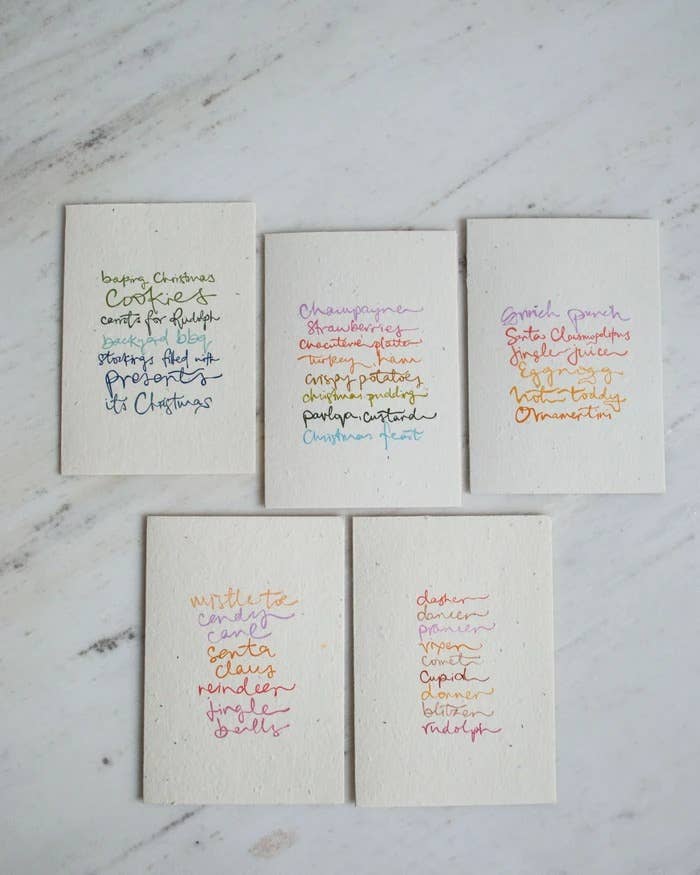 baking Christmas
cookies
carrots for Rudolph
backyard bbq
stockings filled with
presents
it's Christmas
Champagne
strawberries
chacuterie platter
turkey, ham
crispy potatoes
christmas pudding
pavlova, custard
Christmas feast
Grinch punch
Santa Clausmopolitans
Jingle Juice
Eggnogg
Hot toddy
Ornamentini
mistletoe
candy
cane
santa
claus
reindeer
jingle
bells
dasher
dancer
prancer
vixen
comet
cupid
donner
blitzen
rudolph